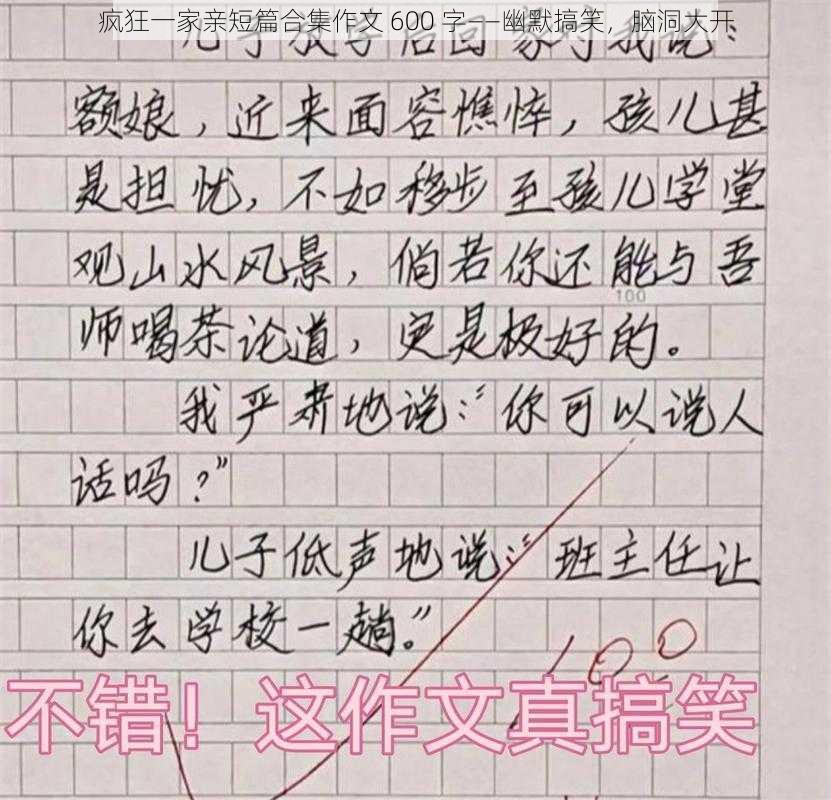 疯狂一家亲短篇合集作文 600 字——幽默搞笑，脑洞大开
儿子放学后回家对我说：
额娘，近来面容憔悴，孩儿甚
是担忧，不如移步至孩儿学堂
观山水风景，倘若你还能与吾
100
师喝茶论道，定是极好的。
我严肃地说：“你可以说人
话吗？”
儿子低声地说：“班主任让
你去学校一趟。”
100
不错！这作文真搞笑